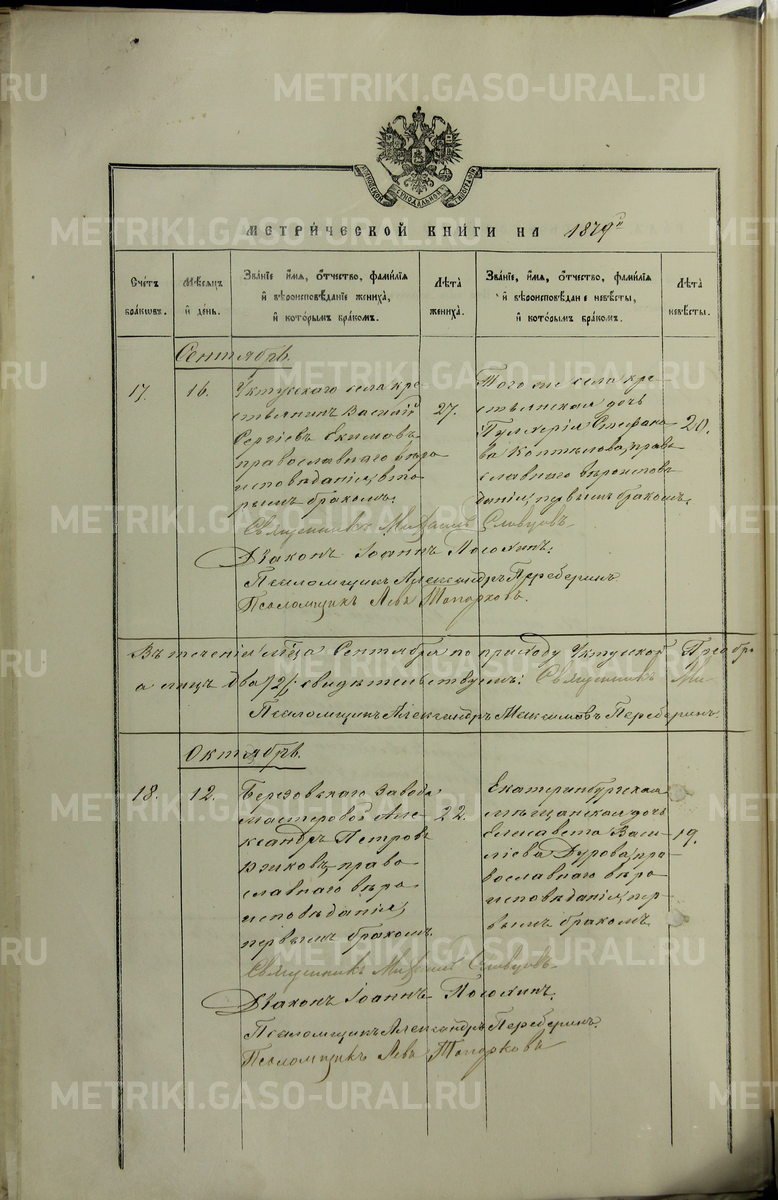 МЕТРИЧЕСКОЙ КНИГИ НА 1879й
Счетъ браковъ.
Мѣсяцъ и день.
Званіе, имя, отчество, фамилія и вѣроисповѣданіе жениха, и которымъ бракомъ.
Лѣта жениха.
Званіе, имя, отчество, фамилія и вѣроисповѣданіе невѣсты, и которымъ бракомъ.
Лѣта невѣсты.
Сентябрь.
17.
16.
Уктусскаго села кре-
стьянинъ Василій
Сергіевъ Екимовъ,
православнаго вѣро
исповѣданія, вто-
рымъ бракомъ.
27.
Того же села кре-
стьянская дочь
Пулхерія Стефано-
ва Коптелова, право-
славнаго вѣроиспов
данія, первымъ бракомъ.
20.
Священникъ Михаилъ Словцовъ
Діаконъ Іоаннъ Посохинъ.
Псаломщикъ Александръ Переберинъ
Псаломщикъ Левъ Топорковъ.
Въ теченіи м-ца Сентября по приходу Уктусской Преобр
а лицъ два /2/ свидѣтельствуемъ: Священникъ Ми
Псаломщикъ Александръ Максимовъ Переберинъ.
Октябрь.
18.
12.
Березовскаго завода
мастеровой Але-
ксандръ Петровъ
право
славнаго вѣро
исповѣданія,
первымъ бракомъ.
22.
Екатеринбургская
мѣщанская дочь
Елисавета Васи-
ліева Дурова, пра-
вославнаго вѣро
исповѣданія, пер-
вымъ бракомъ
19.
Священникъ Михаилъ Словцовъ
Діаконъ Іоаннъ Посохинъ.
Псаломщикъ Александръ Переберинъ.
Псаломщикъ Левъ Топорковъ
METRIKI.GASO-URAL.RU